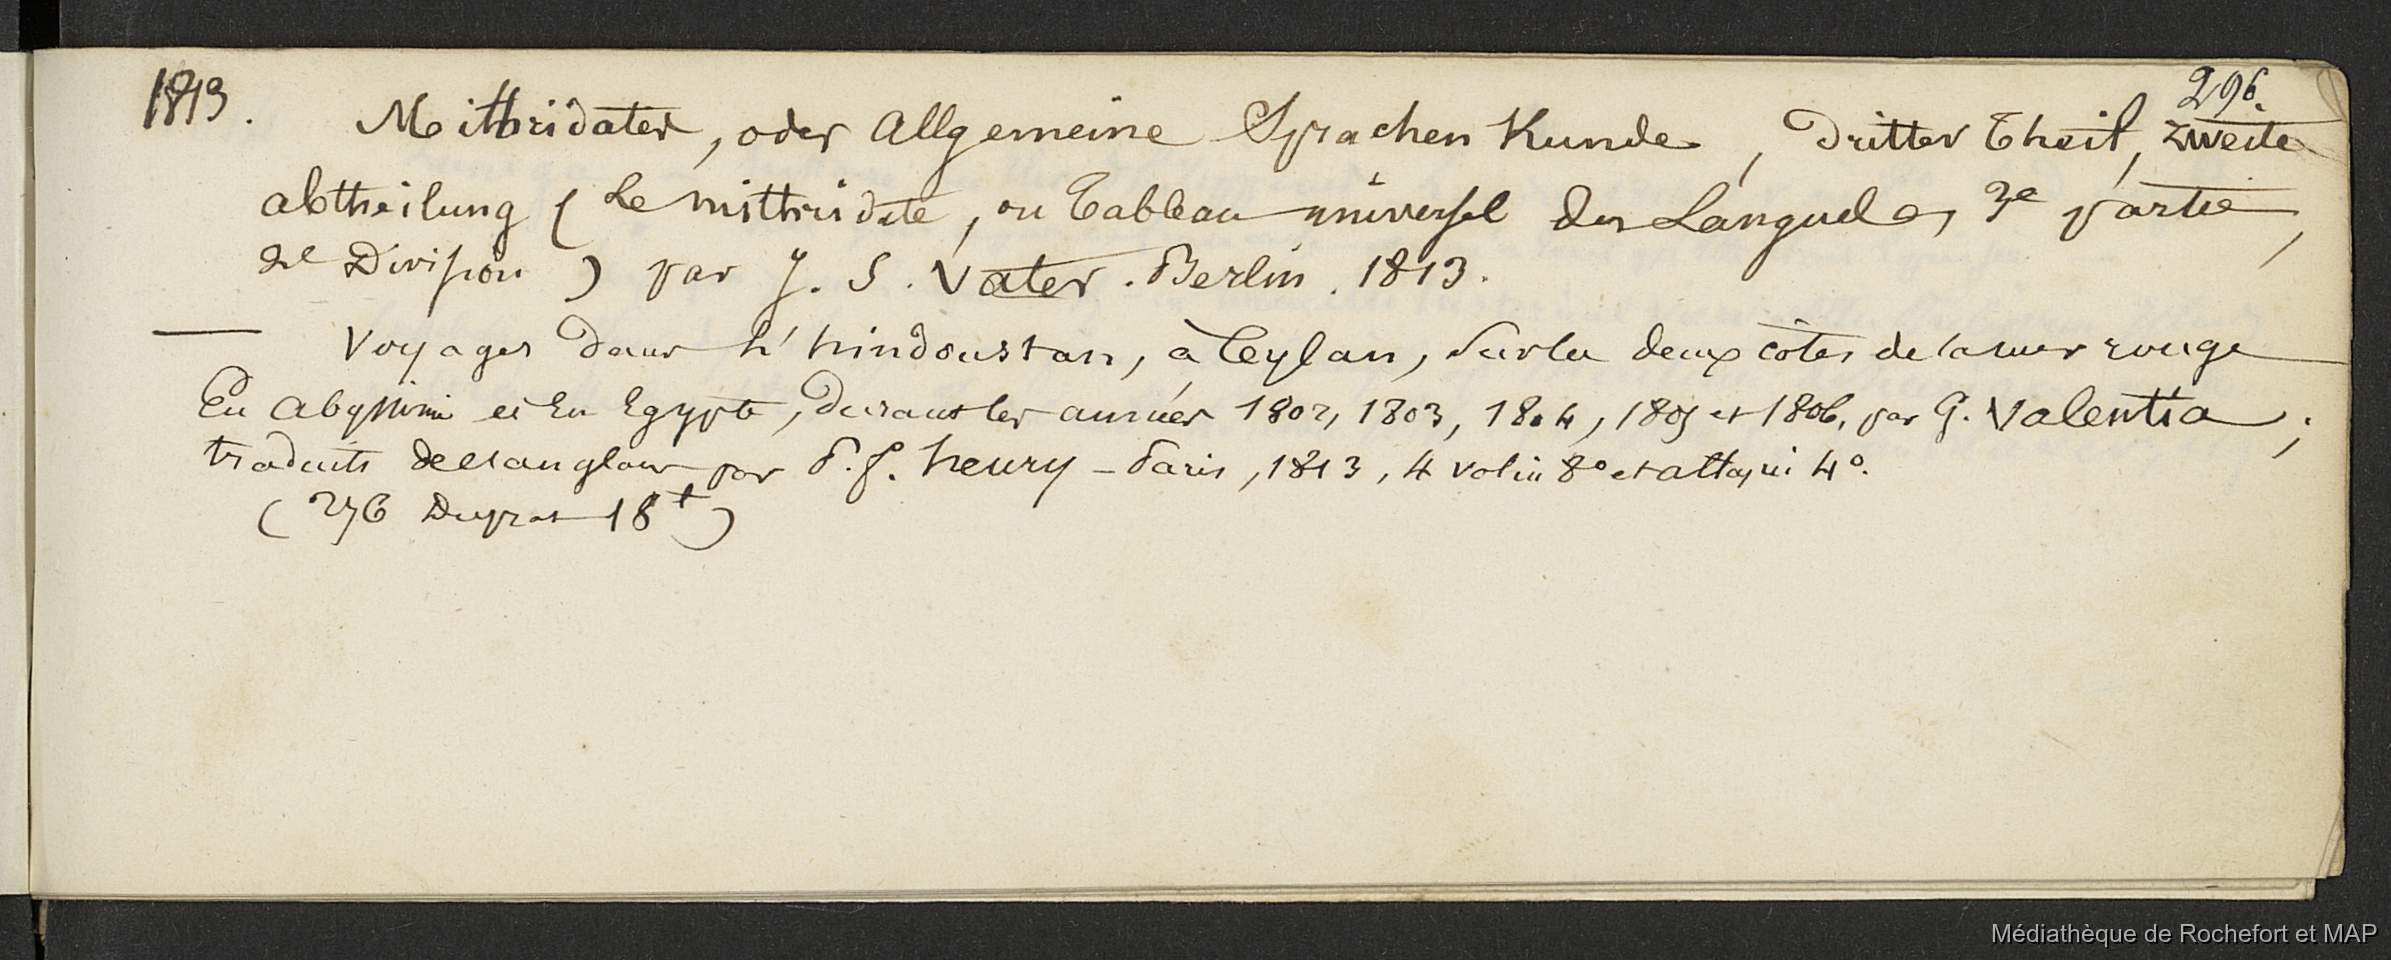 296.
1813. Mithridates, oder Allgemeine Sprachen Kunde, Dritter Theil, zweite
abtheilung (Le mithridate, ou Tableau universel des Langues, 3e partie,
2e Division) par J. S. Vater. Berlin. 1813.
— Voyages dans L'hindoustan, à Ceylan, sur les deux côtes de la mer rouge
En abyssinie et En Egypte, Durant les années 1802, 1803, 1804, 1805 et 1806, par G. Valentia;
traduits de l'anglais par P. f. henry - Paris, 1813, 4 vol in 8º et atlas, in 4º.
(276 Duprat 18 )
Médiathèque de Rochefort et MAP